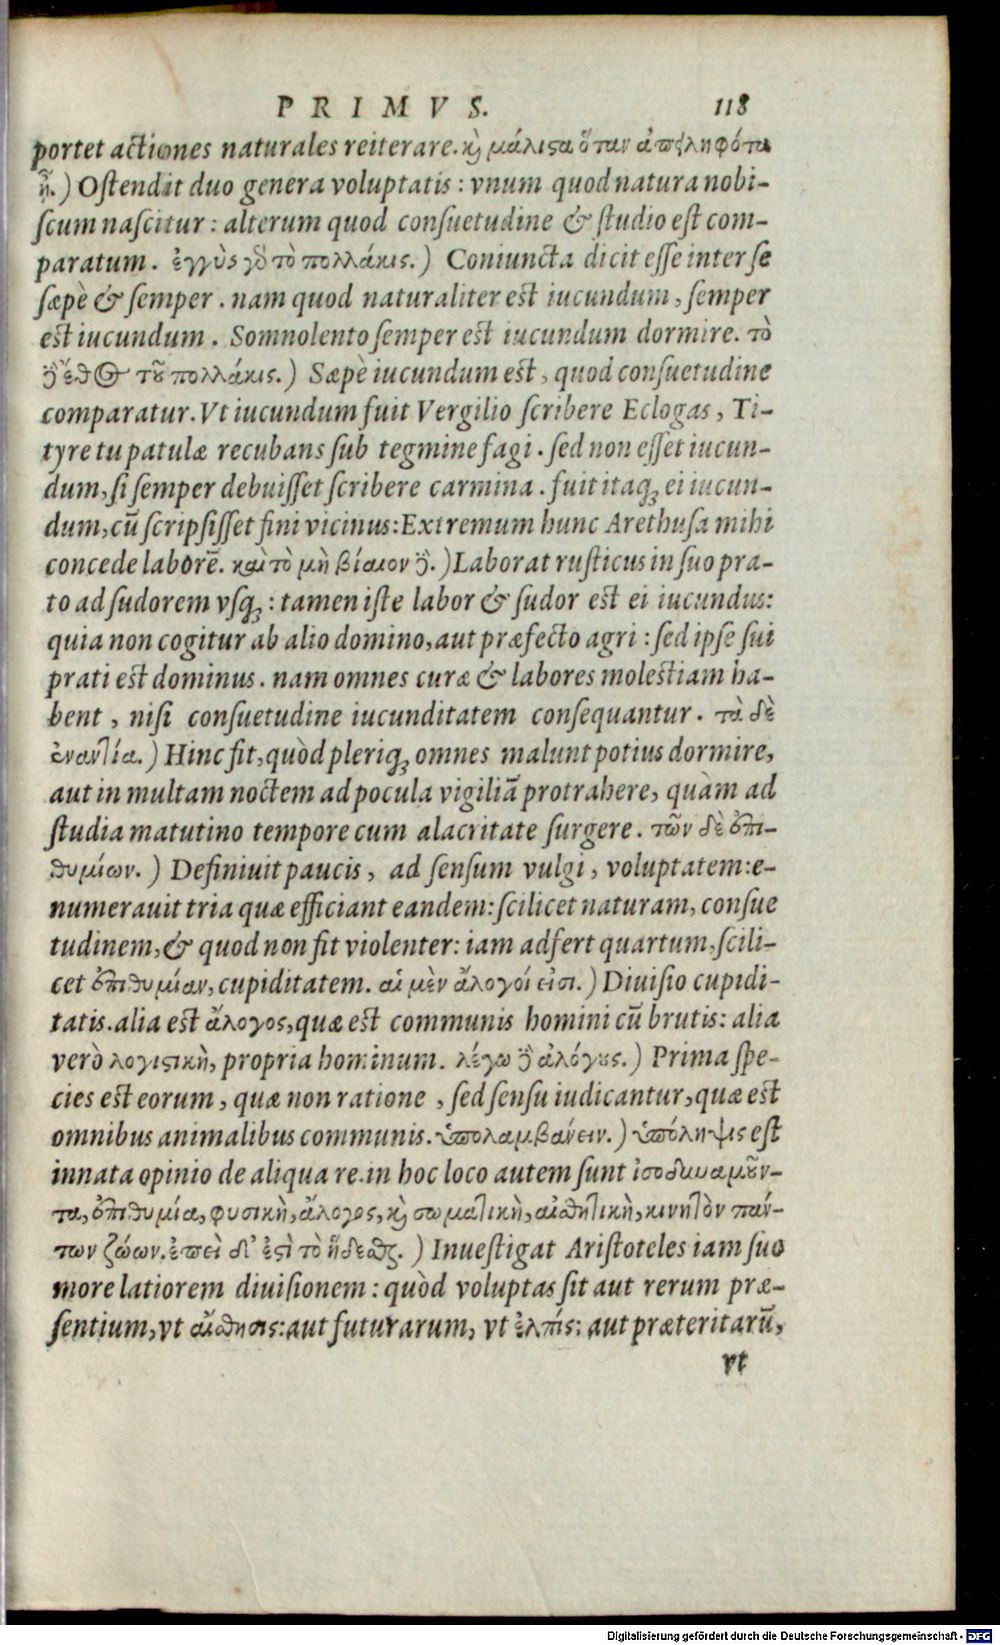 PRIMVS. 118
portet actiones naturales reiterare. κỳ μάλιϛα ὅταν ἀπειληφότα
ᾖ.) Oſtendit duo genera voluptatis: vnum quod natura nobi-
ſcum naſcitur: alterum quod conſuetudine & ſtudio eſt com-
paratum. ἐγγὺς γὸ τὸ πολλάκις.) Coniuncta dicit eſſe inter ſe
ſæpè & ſemper. nam quod naturaliter est iucundum, ſemper
est iucundum. Somnolento ſemper est iucundum dormire. τὸ
ἔθος τȣ͂ πολλάκις.) Sæpè iucundum est, quod conſuetudine
comparatur. Vt iucundum fuit Vergilio ſcribere Eclogas, Ti-
tyre tu patulæ recubans ſub tegmine fagi. ſed non eſſet iucun-
dum, ſi ſemper debuiſſet ſcribere carmina. fuit itaqꝫ ei iucun-
dum, cū ſcripſiſſet fini vicinus: Extremum hunc Arethuſa mihi
concede laborē. καὶ τὸ μὴ βίαιον ὂ.) Laborat ruſticus in ſuo pra-
to ad ſudorem vſqꝫ: tamen iſte labor & ſudor est ei iucundus:
quia non cogitur ab alio domino, aut præfecto agri: ſed ipſe ſui
prati est dominus. nam omnes curæ & labores molestiam ha-
bent, niſi conſuetudine iucunditatem conſequantur. τὰ δὲ
ἐναντία.) Hinc fit, quòd pleriqꝫ omnes malunt potius dormire,
aut in multam noctem ad pocula vigiliā protrahere, quàm ad
ſtudia matutino tempore cum alacritate ſurgere. τῶν δὲ ἐπι-
θυμίων.) Definiuit paucis, ad ſenſum vulgi, voluptatem: e-
numerauit tria quæ efficiant eandem: ſcilicet naturam, conſue
tudinem, & quod non fit violenter: iam adfert quartum, ſcili-
cet ἐπιθυμίαν, cupiditatem. αἱ μὲν ἄλογοί εἰσι.) Diuiſio cupidi-
tatis. alia est ἄλογος, quæ est communis homini cū brutis: alia
verò λογιϛικὴ, propria hominum. λέγω ἀλόγȣς.) Prima ſpe-
cies est eorum, quæ non ratione, ſed ſenſu iudicantur, quæ est
omnibus animalibus communis. ὑπολαμβάνειν.) ὑπόληψις eſt
innata opinio de aliqua re. in hoc loco autem ſunt ἰσοδυναμȣ͂ν-
τα, ἐπιθυμία, φυσικὴ, ἄλογος, κỳ σωματικὴ, αἰσθητικὴ, κινητὸν πάν-
των ζώων. ἐπεὶ δ' ἐϛὶ τὸ ἥδεσθς.) Inueſtigat Ariſtoteles iam ſuo
more latiorem diuiſionem: quòd voluptas ſit aut rerum præ-
ſentium, vt αἴσθησις: aut futurarum, vt ἐλπίς: aut præteritarū,
vt
Digitalisierung gefördert durch die Deutsche Forschungsgemeinschaft - DFG